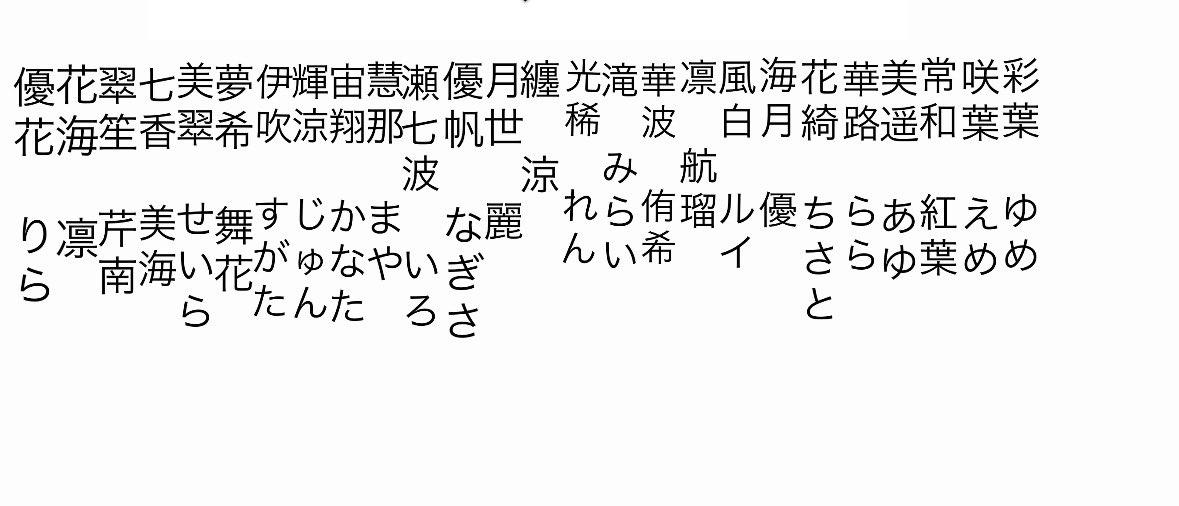 彩葉 ゆめ
咲葉 えめ
常和 紅葉
美遥 あゆ
華路 らら
花綺 ちさと
海月 優
風白 ルイ
凛 航瑠
華波 侑希
滝 みらい
光稀 れん
纏 涼
月世 麗
優帆 なぎさ
瀬七波 いろ
慧那 まや
宙翔 かなた
輝涼 じゅん
伊吹 すがた
夢希 舞花
美翠 せいら
七香 美海
翠笙 芹南
花海 凛
優花 りら